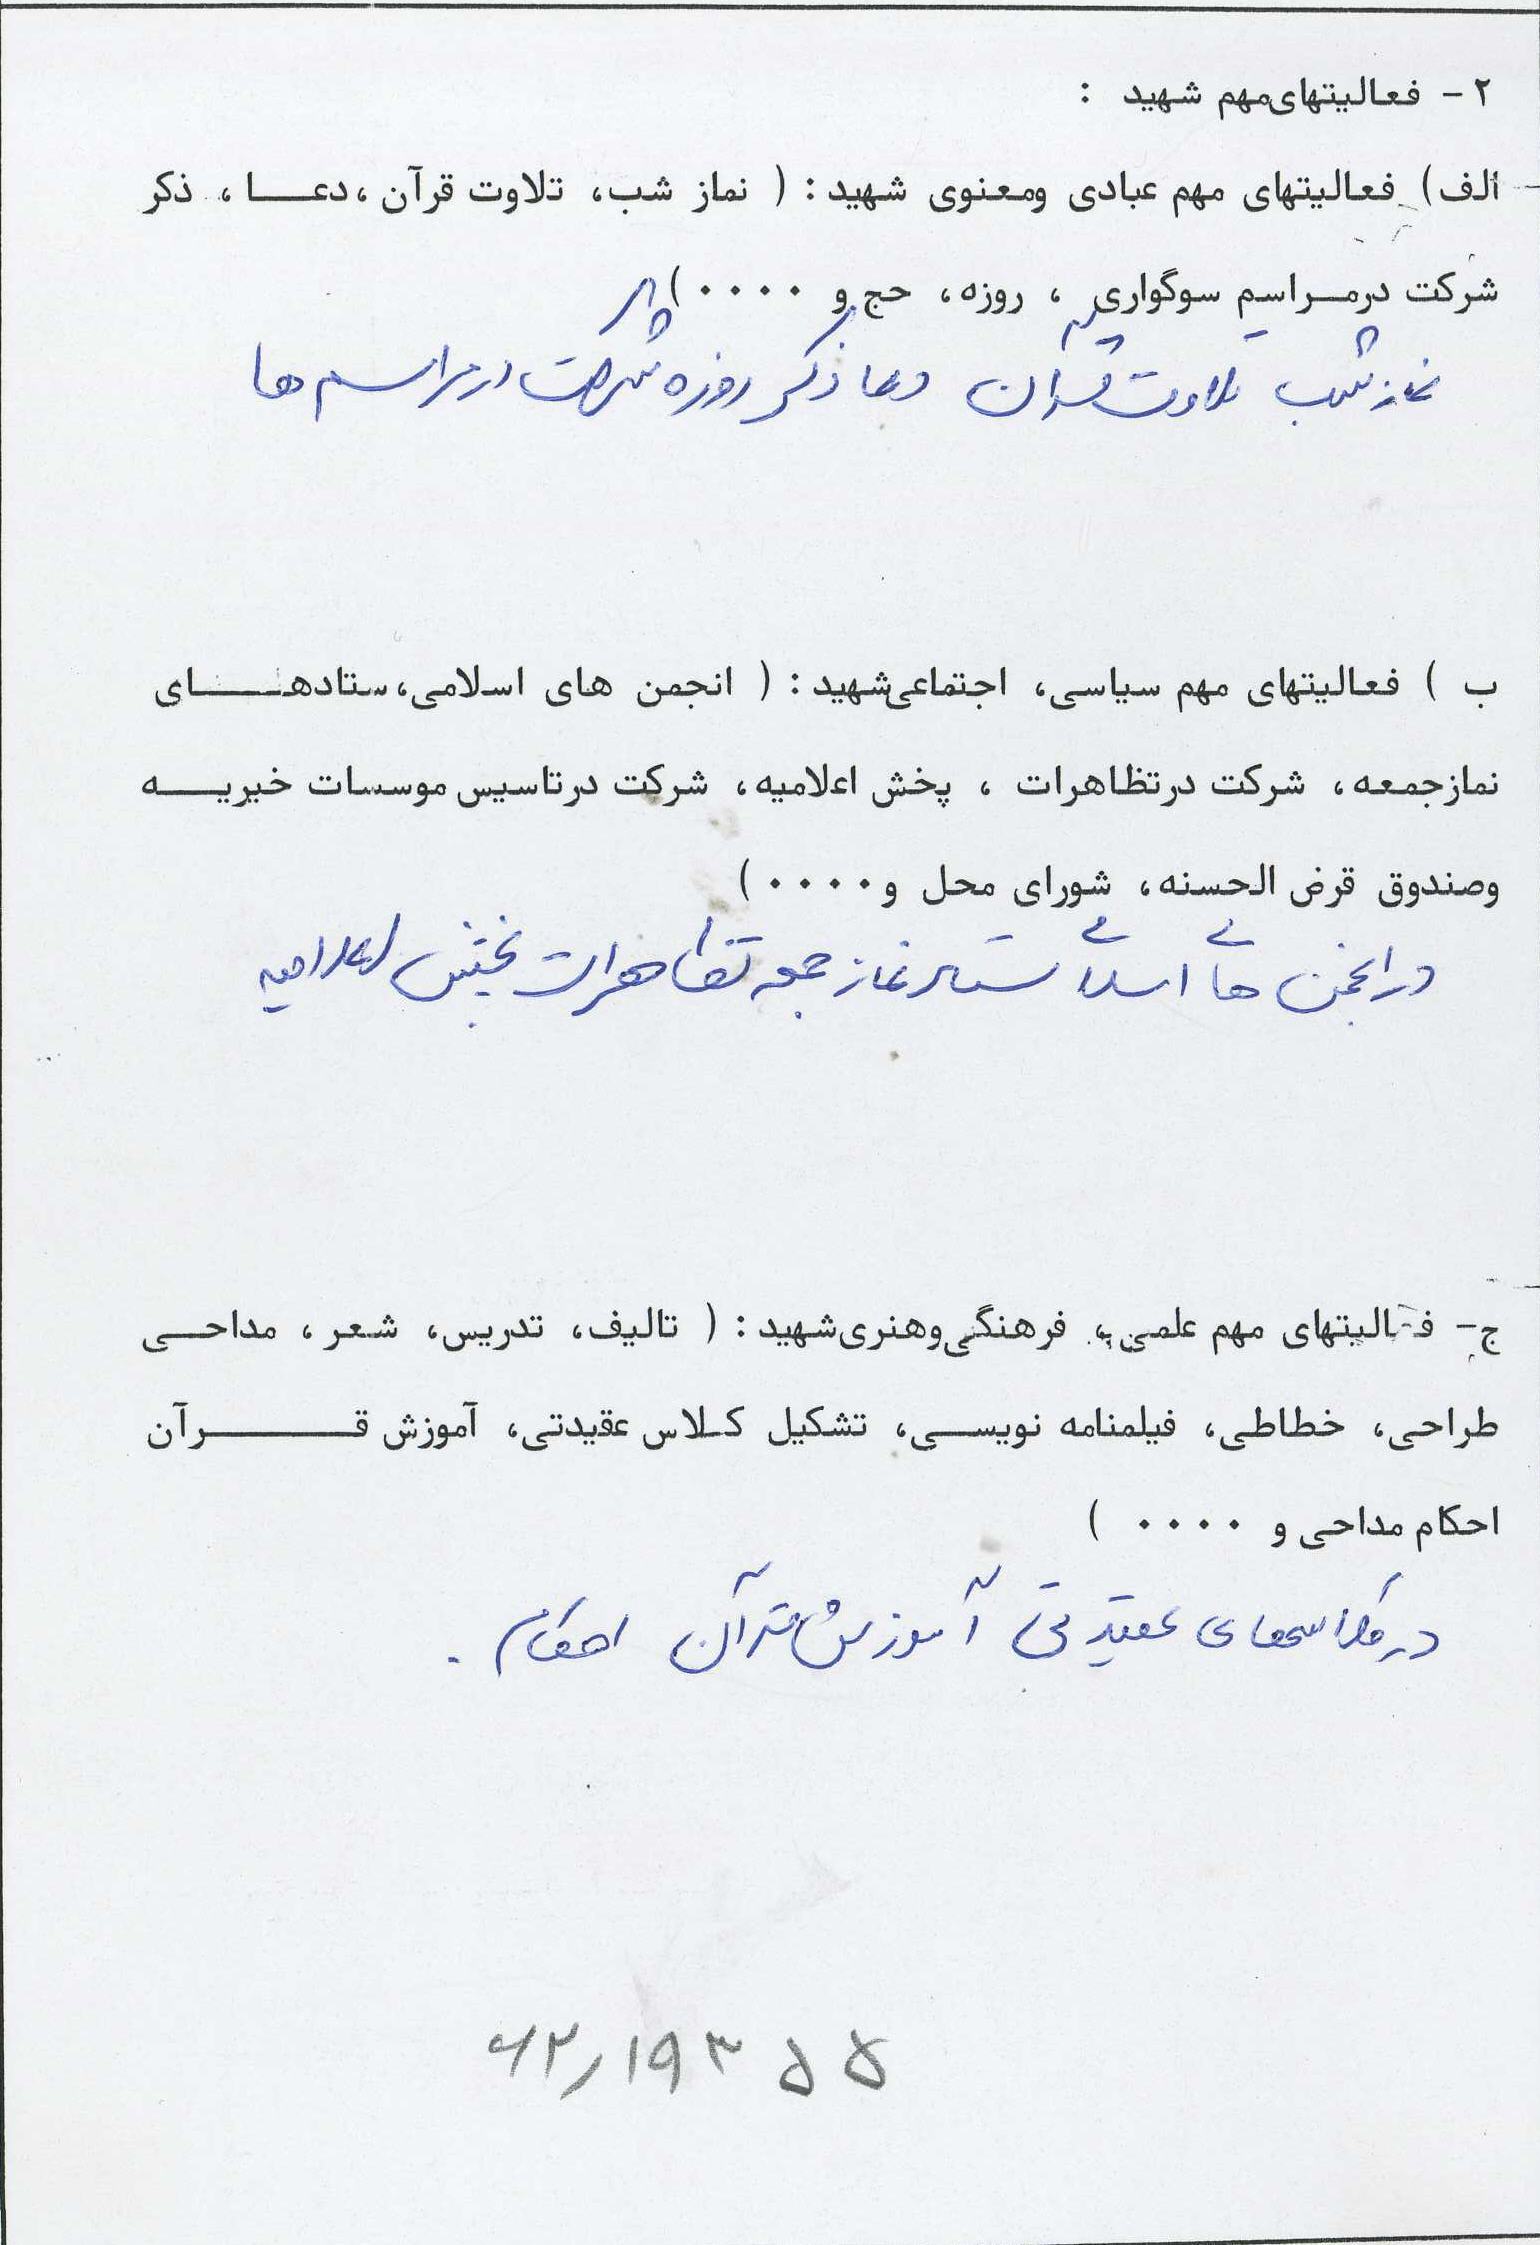 ۲ - فعالیتهای مهم شهید :
الف) فعالیتهای مهم عبادی ومعنوی شهید : ( نماز شب، تلاوت قرآن ، دعا ، ذکر
شرکت درمراسم سوگواری ، روزه، حج و ۰۰۰۰)
نماز شب تلاوت قرآن دعا ذکر روزه شرکت در مراسم ها
ب ) فعالیتهای مهم سیاسی، اجتماعی شهید : ( انجمن های اسلامی، ستادهای
نمازجمعه، شرکت درتظاهرات ، پخش اعلامیه، شرکت درتاسیس موسسات خیریه
وصندوق قرض الحسنه، شورای محل و ۰۰۰۰)
در انجمن های اسلامی ستاد نماز جمعه تظاهرات پخش اعلامیه
ج- فعالیتهای مهم علمی، فرهنگی وهنری شهید : ( تالیف، تدریس، شعر ، مداحی
طراحی، خطاطی، فیلمنامه نویسی، تشکیل کلاس عقیدتی، آموزش قرآن
احکام مداحی و ۰۰۰۰ )
در کلاسهای عقیدتی آموزش قرآن احکام .